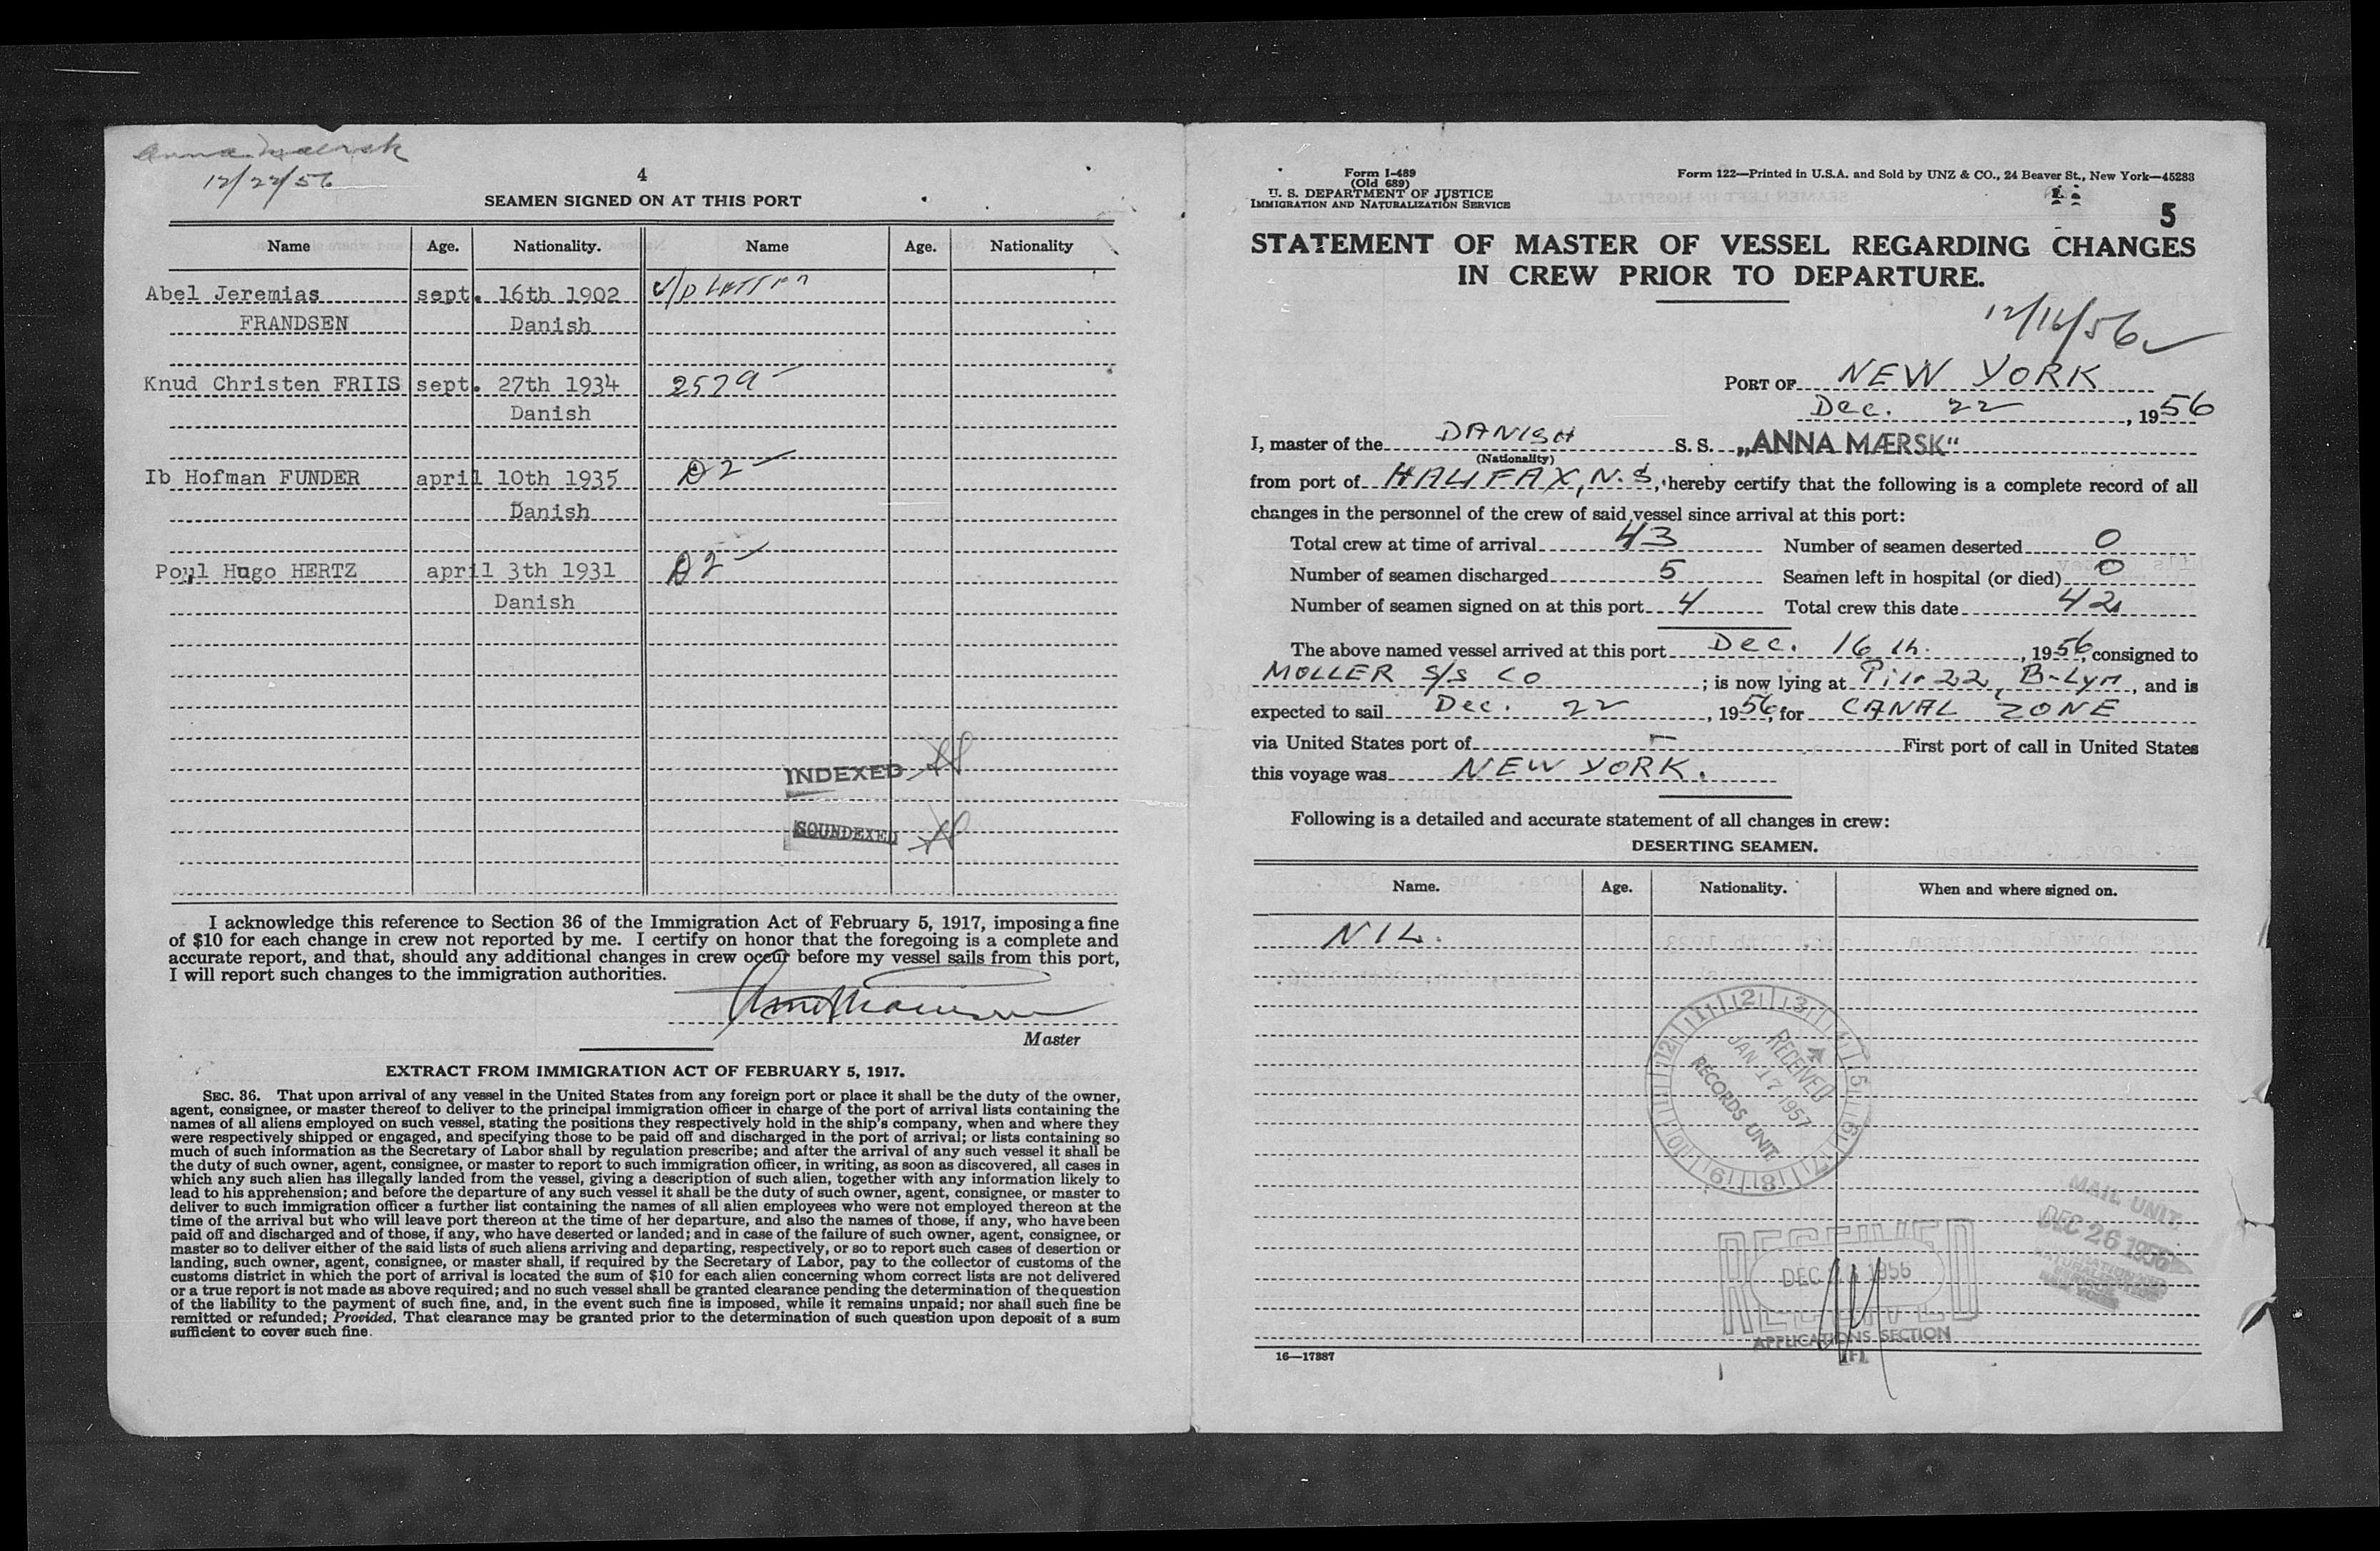 Anna Maersk
12/22/56
4
SEAMEN SIGNED ON AT THIS PORT
Name Age. Nationality. Name Age. Nationality
Abel Jeremias sept. 16th 1902
FRANDSEN Danish
Knud Christen FRIIS sept. 27th 1934 2579
Danish
Ib Hofman FUNDER april 10th 1935 D2
Danish
Poul Hugo HERTZ april 3th 1931 D2
Danish
INDEXED
SOUNDEXED
I acknowledge this reference to Section 36 of the Immigration Act of February 5, 1917, imposing a fine
of $10 for each change in crew not reported by me. I certify on honor that the foregoing is a complete and
accurate report, and that, should any additional changes in crew occur before my vessel sails from this port,
I will report such changes to the immigration authorities.
Master
EXTRACT FROM IMMIGRATION ACT OF FEBRUARY 5, 1917.
SEC. 36. That upon arrival of any vessel in the United States from any foreign port or place it shall be the duty of the owner,
agent, consignee, or master thereof to deliver to the principal immigration officer in charge of the port of arrival lists containing the
names of all aliens employed on such vessel, stating the positions they respectively hold in the ship's company, when and where they
were respectively shipped or engaged, and specifying those to be paid off and discharged in the port of arrival; or lists containing so
much of such information as the Secretary of Labor shall by regulation prescribe; and after the arrival of any such vessel it shall be
the duty of such owner, agent, consignee, or master to report to such immigration officer, in writing, as soon as discovered, all cases in
which any such alien has illegally landed from the vessel, giving a description of such alien, together with any information likely to
lead to his apprehension; and before the departure of any such vessel it shall be the duty of such owner, agent, consignee, or master to
deliver to such immigration officer a further list containing the names of all alien employees who were not employed thereon at the
time of the arrival but who will leave port thereon at the time of her departure, and also the names of those, if any, who have been
paid off and discharged and of those, if any, who have deserted or landed; and in case of the failure of such owner, agent, consignee, or
master so to deliver either of the said lists of such aliens arriving and departing, respectively, or so to report such cases of desertion or
landing, such owner, agent, consignee, or master shall, if required by the Secretary of Labor, pay to the collector of customs of the
customs district in which the port of arrival is located the sum of $10 for each alien concerning whom correct lists are not delivered
or a true report is not made as above required; and no such vessel shall be granted clearance pending the determination of the question
of the liability to the payment of such fine, and, in the event such fine is imposed, while it remains unpaid; nor shall such fine be
remitted or refunded; Provided, That clearance may be granted prior to the determination of such question upon deposit of a sum
sufficient to cover such fine.
Form I-489
(Old 689)
U. S. DEPARTMENT OF JUSTICE
IMMIGRATION AND NATURALIZATION SERVICE
Form 122—Printed in U.S.A. and Sold by UNZ & CO., 24 Beaver St., New York—45283
5
STATEMENT OF MASTER OF VESSEL REGARDING CHANGES
IN CREW PRIOR TO DEPARTURE.
12/16/56
PORT OF NEW YORK
Dec. 22, 1956
I, master of the DANISH S. S. „ANNA MÆRSK“
(Nationality)
from port of HALIFAX, N.S, hereby certify that the following is a complete record of all
changes in the personnel of the crew of said vessel since arrival at this port:
Total crew at time of arrival 43 Number of seamen deserted 0
Number of seamen discharged 5 Seamen left in hospital (or died) 0
Number of seamen signed on at this port 4 Total crew this date 42
The above named vessel arrived at this port Dec. 16 th., 1956, consigned to
MOLLER S/S CO; is now lying at Pier 22, B-Lyn, and is
expected to sail Dec. 22, 1956, for CANAL ZONE
via United States port of - First port of call in United States
this voyage was NEW YORK.
Following is a detailed and accurate statement of all changes in crew:
DESERTING SEAMEN.
Name. Age. Nationality. When and where signed on.
NIL.
RECEIVED
JAN 17 1957
RECORDS UNIT
MAIL UNIT
DEC 26 1956
RECEIVED
DEC 1956
APPLICATIONS SECTION
16—17387